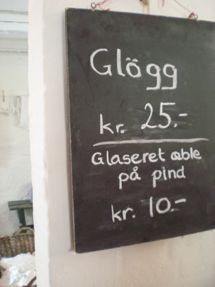 Glögg
kr. 25.-
Glaseret æble
på pind
kr. 10.-